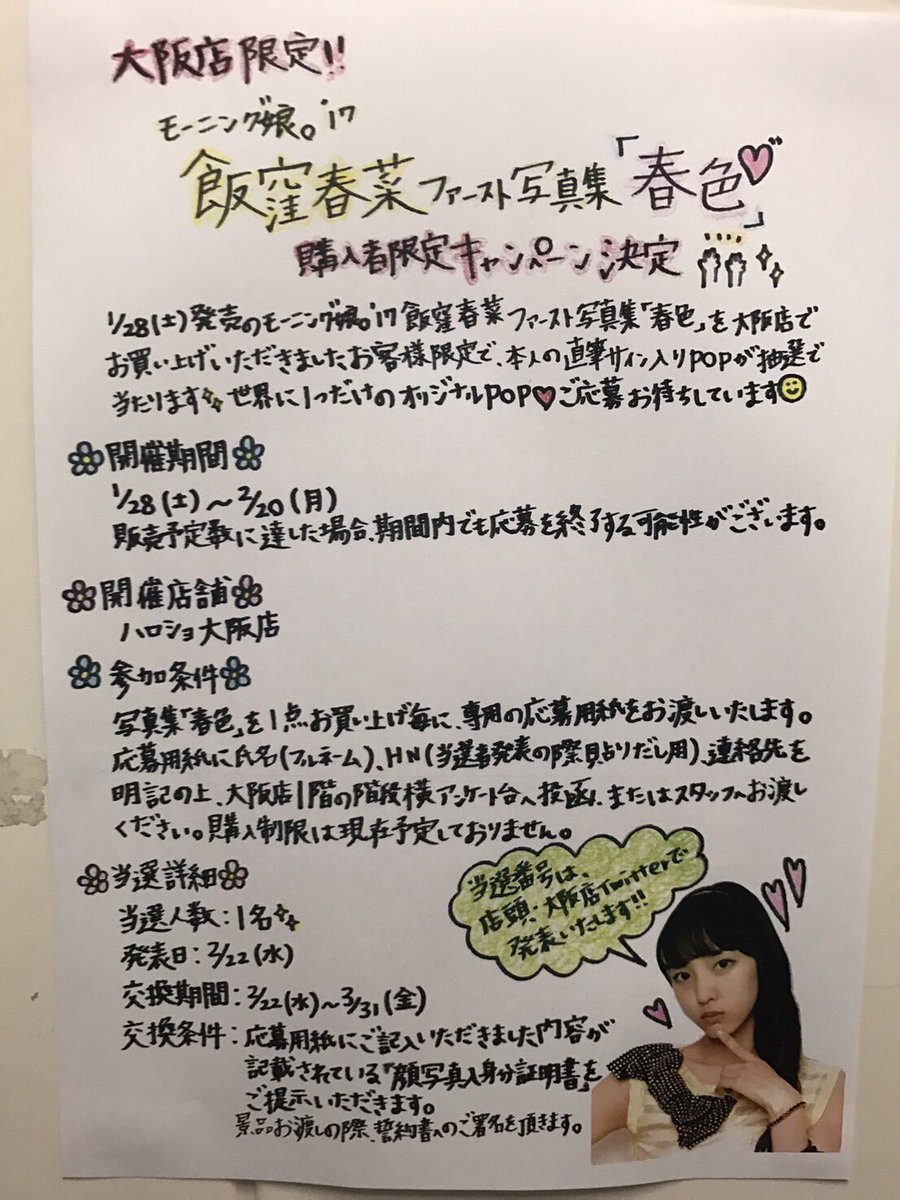 大阪店限定!!
モーニング娘。'17
飯窪春菜ファースト写真集「春色♡」
購入者限定キャンペーン決定
1/28(土)発売のモーニング娘。'17飯窪春菜ファースト写真集「春色」を大阪店で
お買い上げいただきましたお客様限定で、本人の直筆サイン入りPOPが抽選で
当たります✨世界に1つだけのオリジナルPOP♡ご応募お待ちしています☺
開催期間
1/28(土)～2/20(月)
販売予定数に達した場合、期間内でも応募を終了する可能性がございます。
開催店舗
ハロショ大阪店
参加条件
写真集「春色」を1点お買い上げ毎に、専用の応募用紙をお渡しいたします。
応募用紙に氏名(フルネーム)、HN(当選者発表の際貼りだし用)、連絡先を
明記の上、大阪店1階の階段横アンケート台へ投函、またはスタッフへお渡し
ください。購入制限は現在予定しておりません。
当選詳細
当選人数:1名✨
発表日:2/22(水)
交換期間:2/22(水)～3/31(金)
交換条件:応募用紙にご記入いただきました内容が
記載されている「顔写真入身分証明書」を
ご提示いただきます。
景品お渡しの際、誓約書へのご署名を頂きます。
当選番号は、
店頭・大阪店Twitterで
発表いたします!!